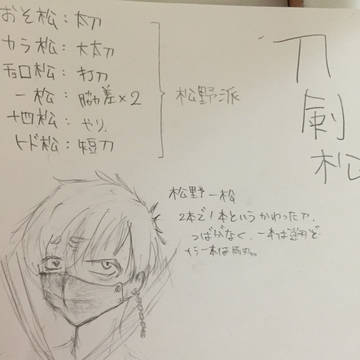 おそ松：太刀
カラ松：大太刀
チョロ松：打刀
一松：脇差×2
十四松：やり
トド松：短刀
松野派
刀剣松
松野一松
2本で1本というかわった刀。
つばがなく、一本は逆刃で
もう一本は両刃。